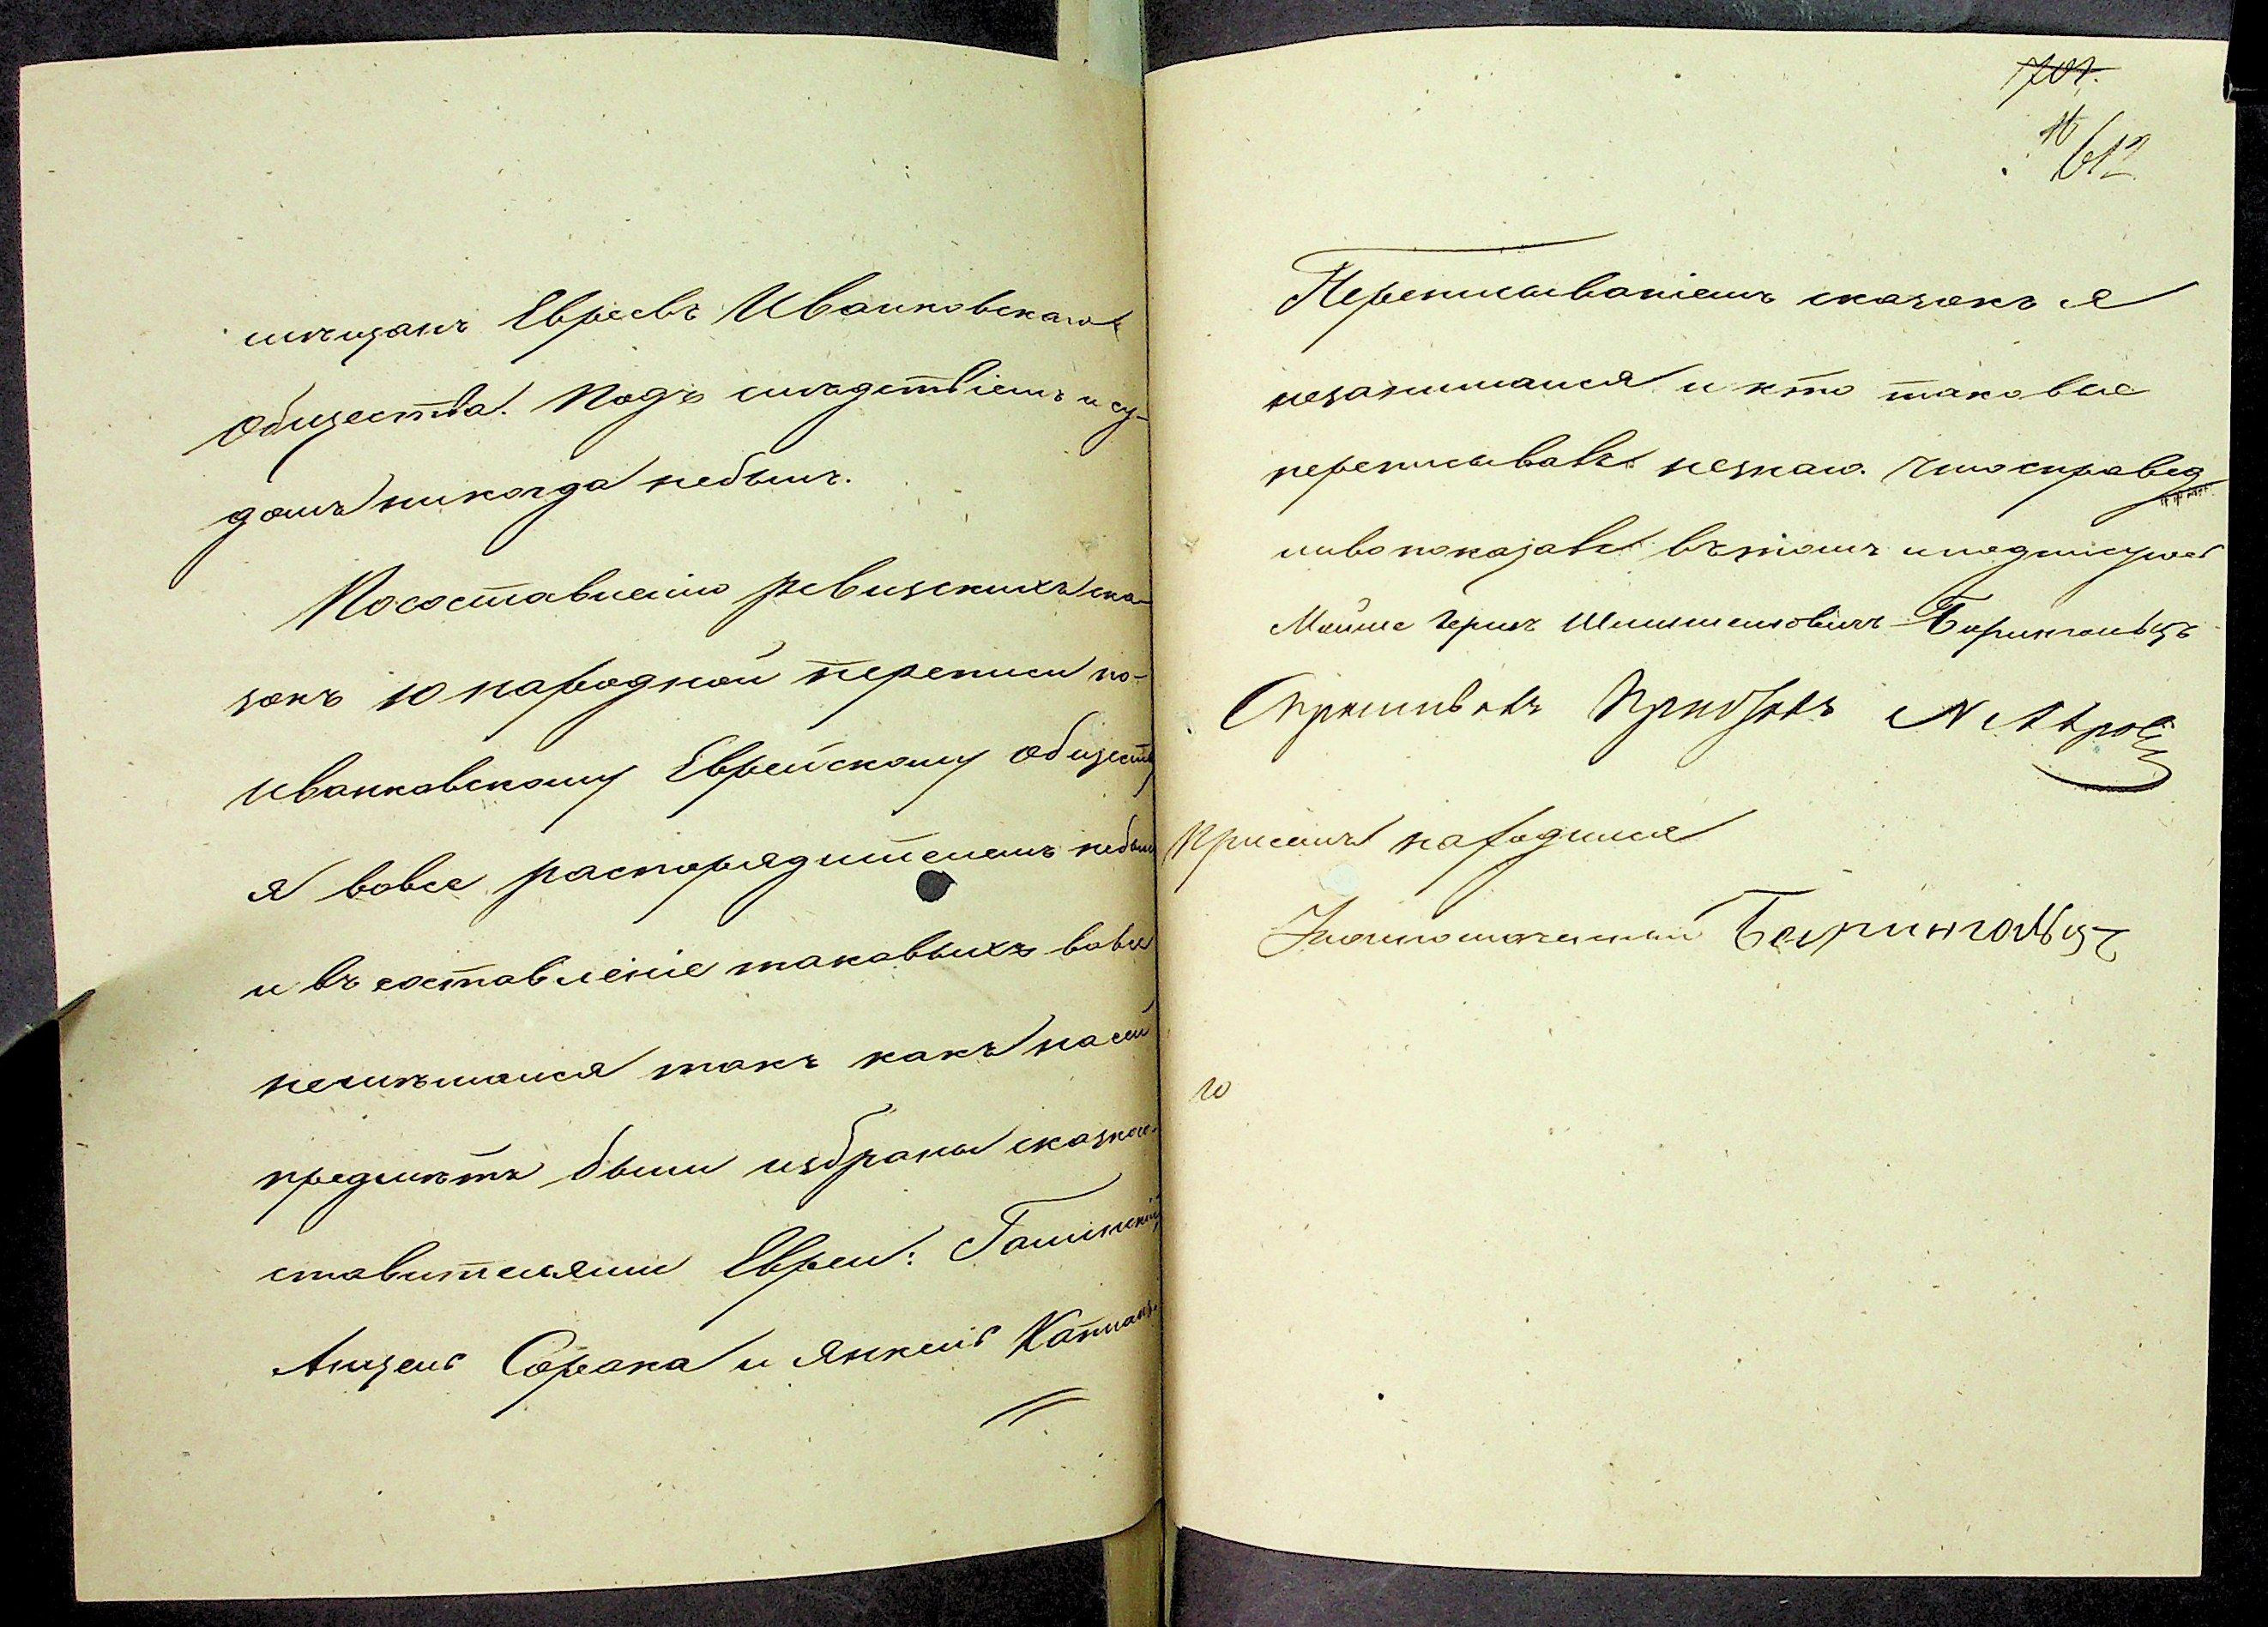 мѣщанъ Евреевъ Иванковскаго
Общества. Подъ слѣдствіемъ и су-
домъ никогда небылъ.
Посоставленію ревизскихъ ска-
зокъ 10 народной переписи по-
Иванковскому Еврейскому обществу
я вовсе распорядителемъ небылъ
и въ составленіе таковыхъ вовсе
немѣшался такъ какъ на сей
предметъ были избраны сказко-
ставителями Евреи: Галинскій,
Сорока и Янкель Капланъ.
701.
612
Переписываніемъ сказокъ я
незанимался и кто таковые
переписывалъ незнаю. Что справед
ливо показалъ въ томъ и подписуюсь
Мойше Гершъ Шлиомовичъ Берингольцъ
При семъ находился
Уполномоченный Берингольцъ
10